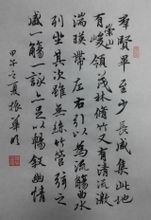 群賢畢至少長咸集此地
有崇山峻領茂林脩竹又有清流激
湍暎帶左右引以為流觴曲水
列坐其次雖無絲竹管弦之
盛一觴一詠亦足以暢敘幽情
甲午之夏振華